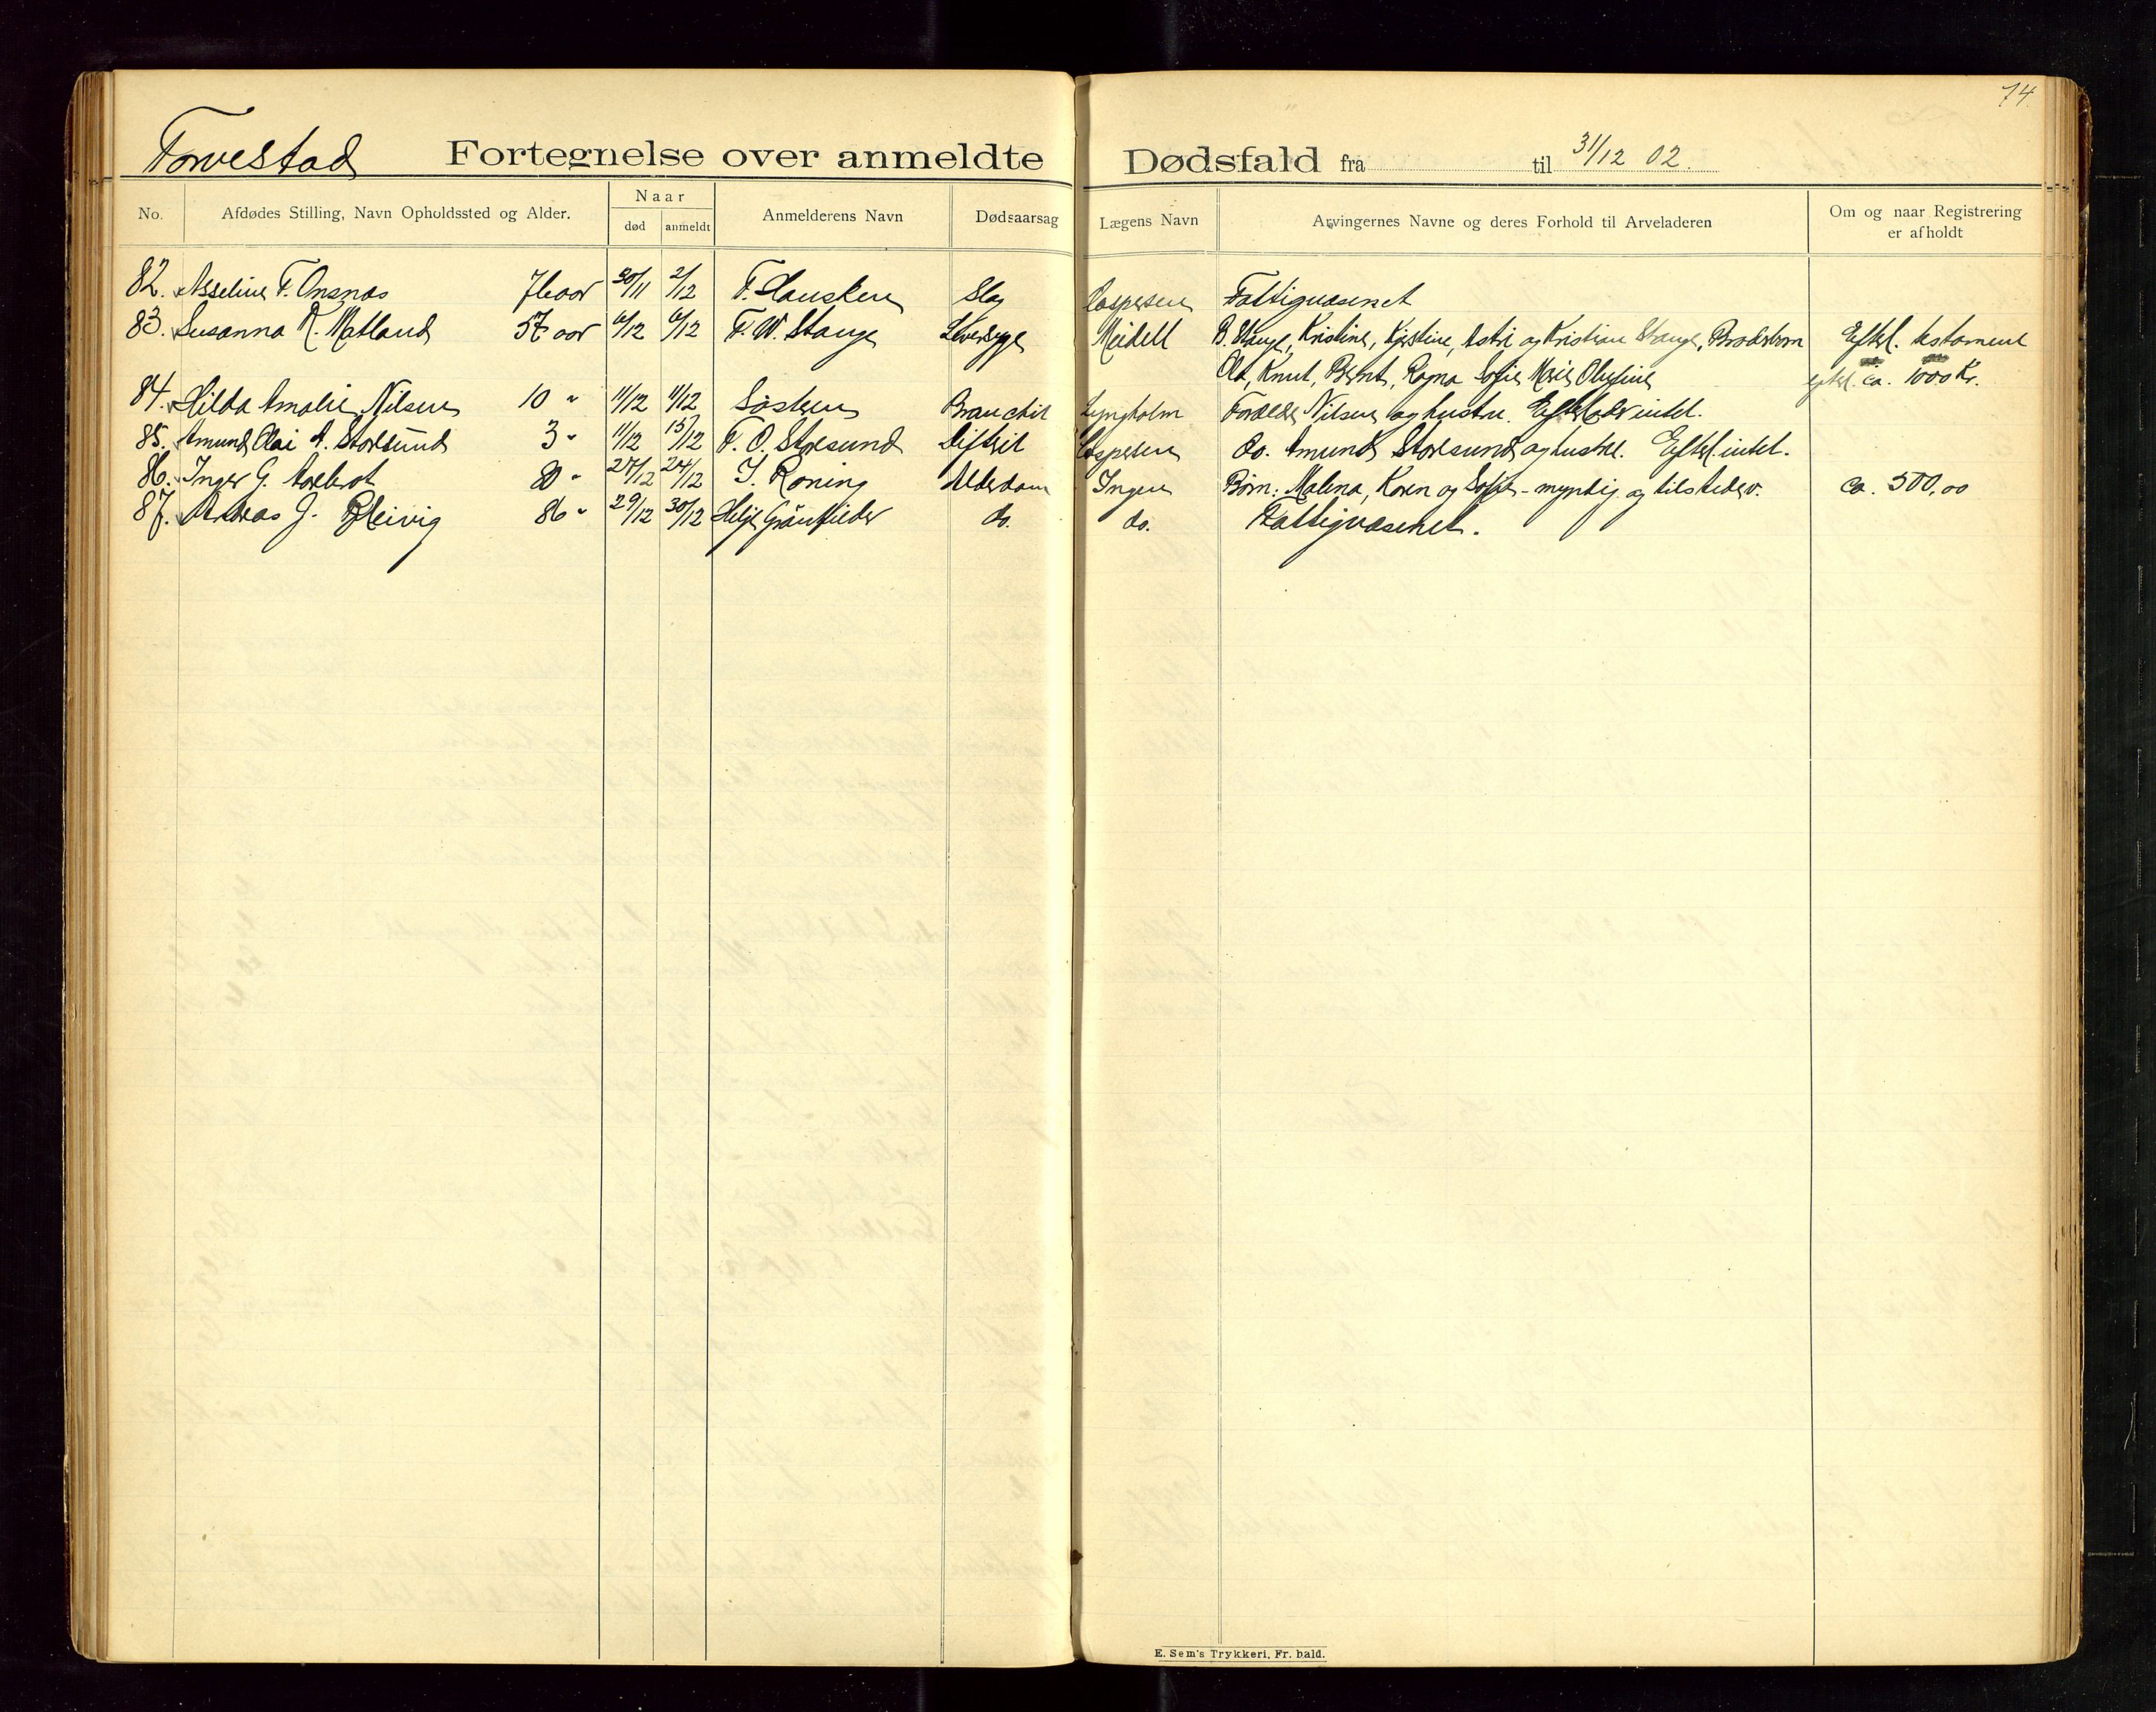 74
Torvestad Fortegnelse over anmeldte Dødsfald fra til 31/12 02.
No. Afdødes Stilling, Navn Opholdssted og Alder. Naar død anmeldt Anmelderens Navn Dødsaarsag Lægens Navn Arvingernes Navne og deres Forhold til Arveladeren Om og naar Registrering er afholdt
82. Asseline T. Onsnæs 76 aar 30/11 2/12 T. Hausken Slag Caspersen Fattigvæsenet
83. Susanna K. Matland 57 aar 6/12 6/12 T. W. Stange Leversyge Meidell B. Stange, Kristine, Kjerstine, Astri og Kristian Stange, Broderbørn Efterl. testamente
Ola, Knut, Bernt, Ragna Sofie Marie Olufine efterl. ca. 1000 Kr.
84. Hilda Amalie Nilsen 10 " 11/12 11/12 Søsteren Bronchit Lyngholm Forældre Nilsen og hustru. Efterlader intet.
85. Amund Olai A. Storesund 3 " 11/12 15/12 T. O. Storesund Difterit Caspersen do. Amund Storesund og hustru. Efterl. intet.
86. Inger G. 80 " 24/12 I. Røning Alderdom Ingen Børn: Malena, Karen og Sofie - myndig og tilstedev. ca. 500,00
87. Andreas G. Bleivig 86 " 29/12 30/12 Helje Grønflider do. do. Fattigvæsenet.
E. Sem's Trykkeri, Fr. hald.